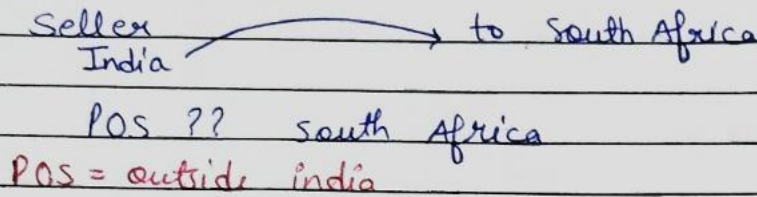 Seller to South Africa
India
POS ?? South Africa
POS = outside india